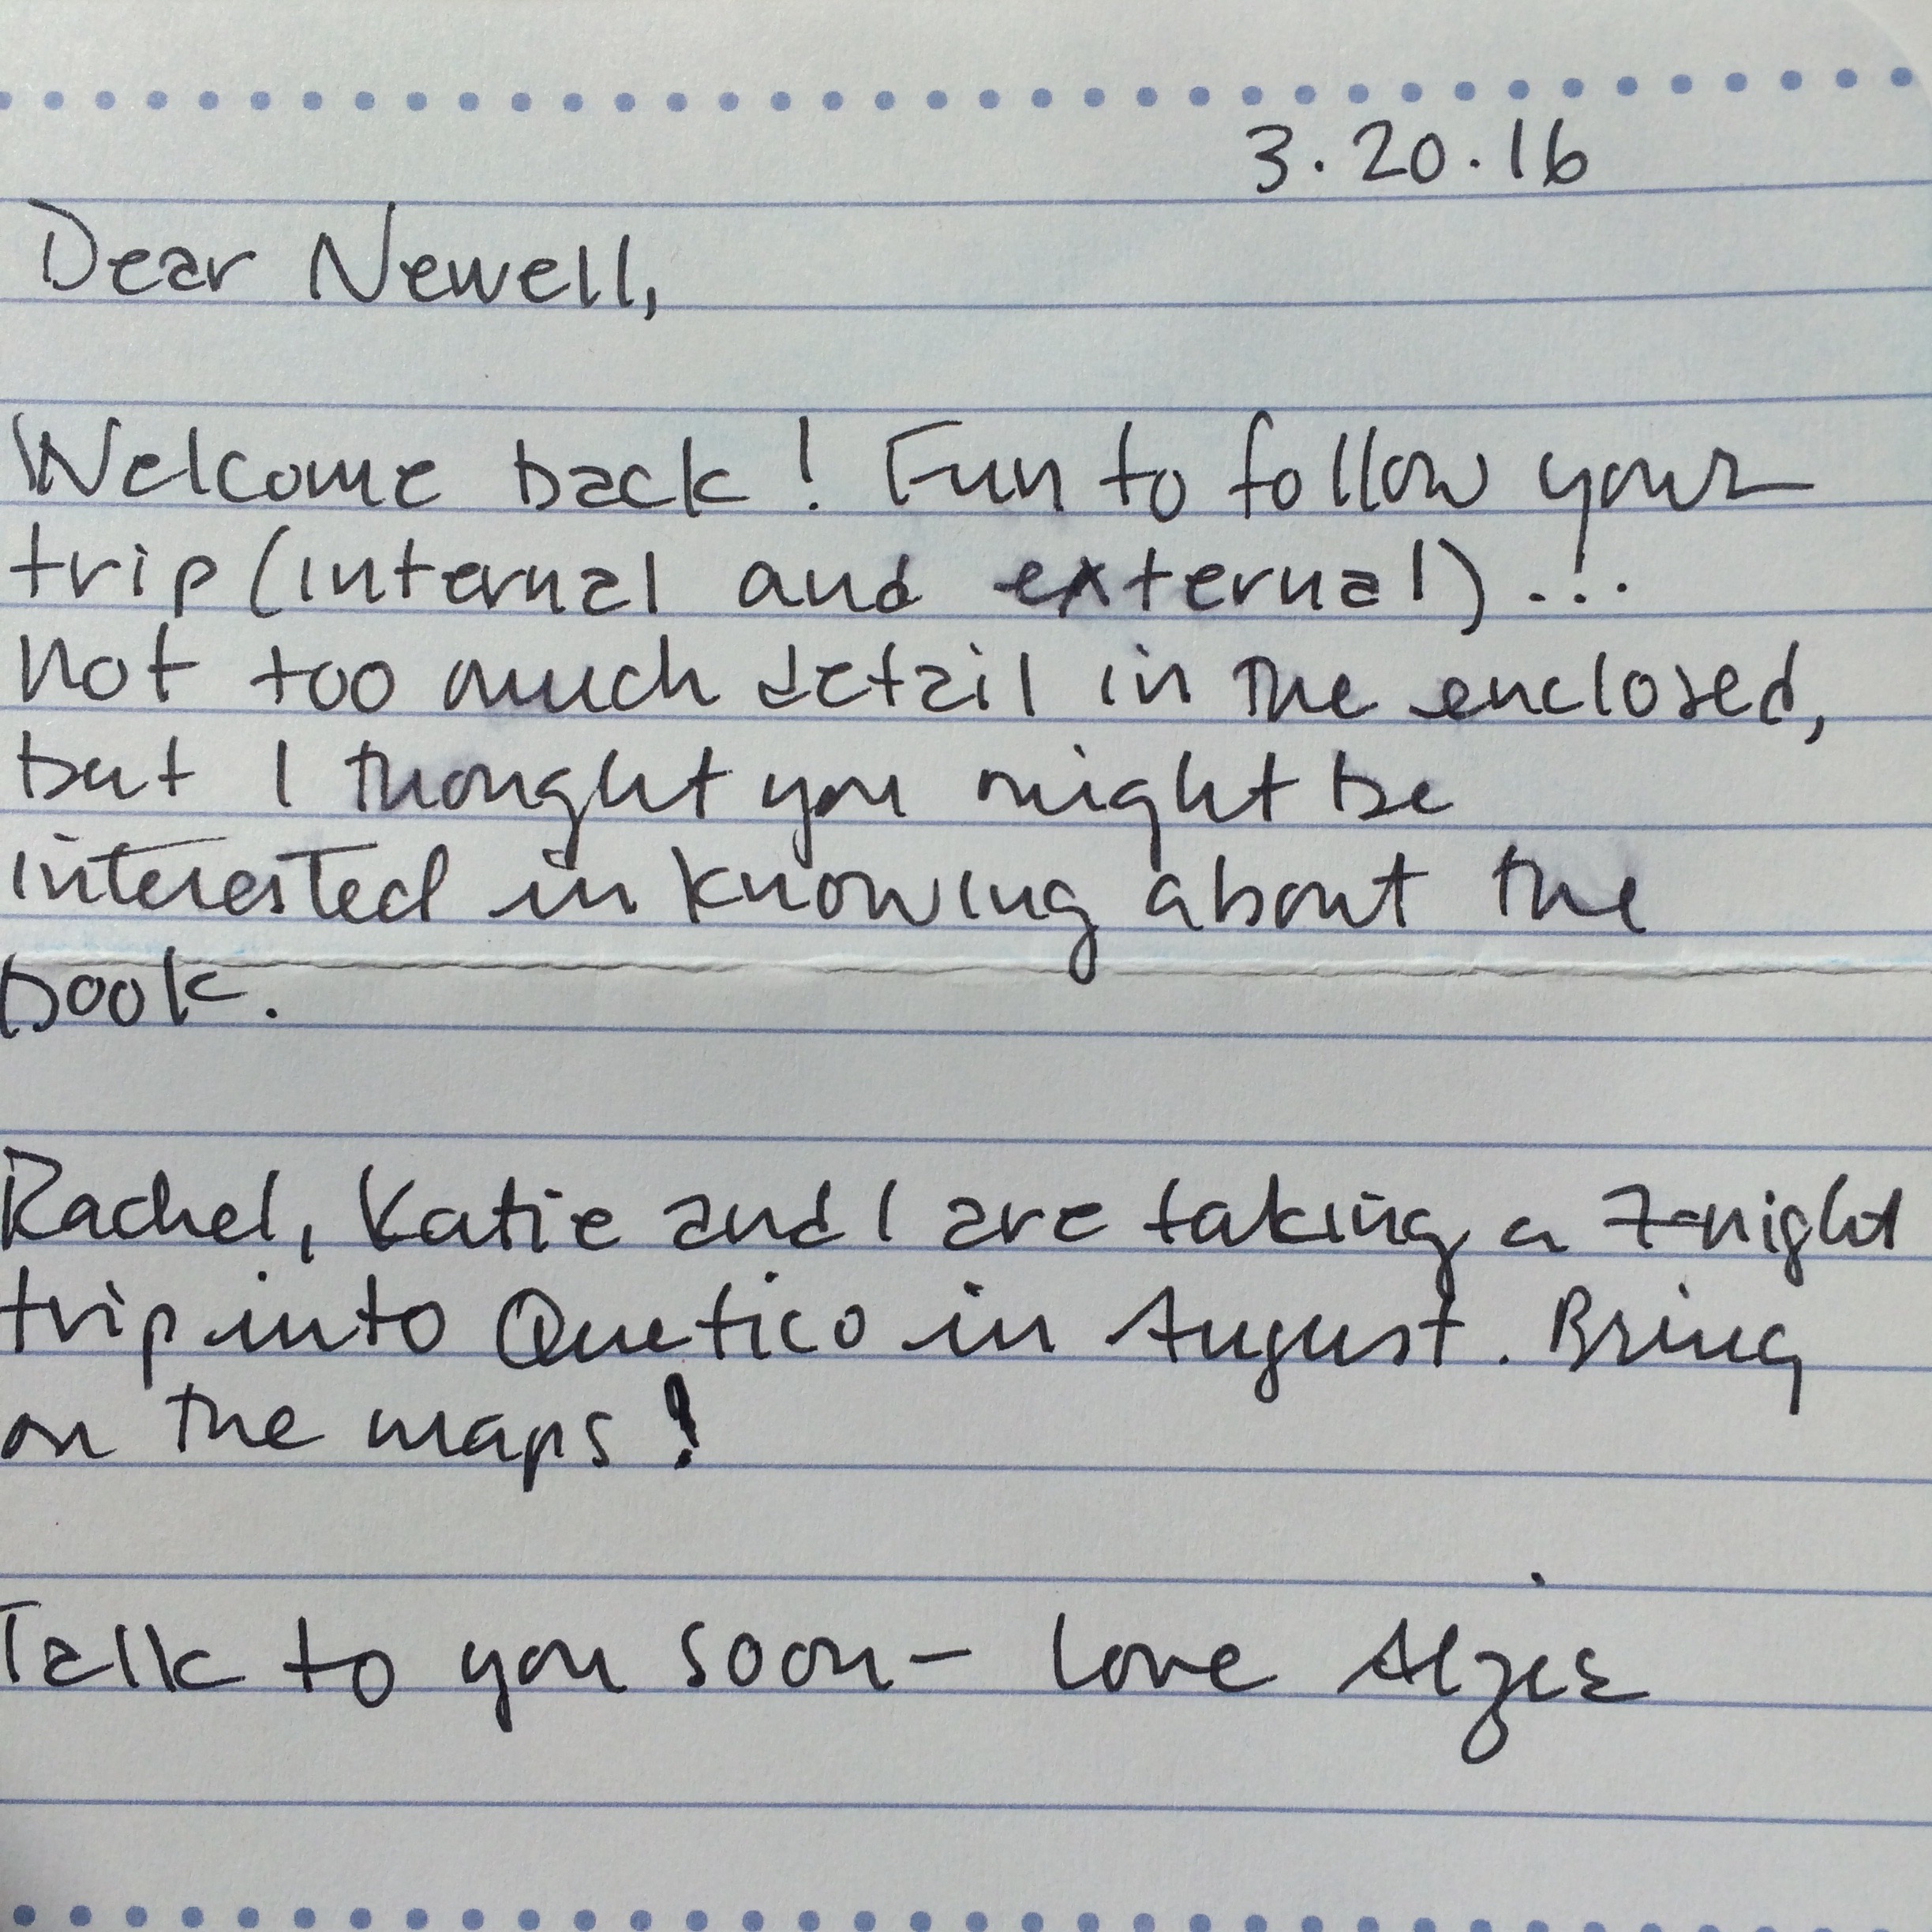 3.20.16
Dear Newell,
Welcome back! Fun to follow your
trip (internal and external).!.
Not too much detail in the enclosed,
but I thought you might be
interested in knowing about the
book.
Rachel, Katie and I are taking a 7-night
trip into Quetico in August. Bring
on the maps!
Talk to you soon- love